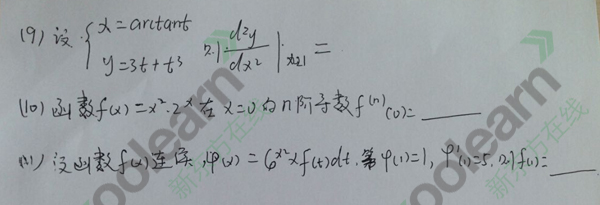 (9) 设 { x = arctant
y = 3t + t³ 则 d²y/dx² | x=1 =
(10) 函数 f(x) = x²·2ˣ 在 x=0 的 n 阶导数 f⁽ⁿ⁾(0) = ____
(11) 设函数 f(x) 连续, φ(x) = 6^x² x f(t)dt, 若 φ(1)=1, φ'(1)=5, 则 f(1) = ____
koolearn
新东方在线
koolearn
新东方在线